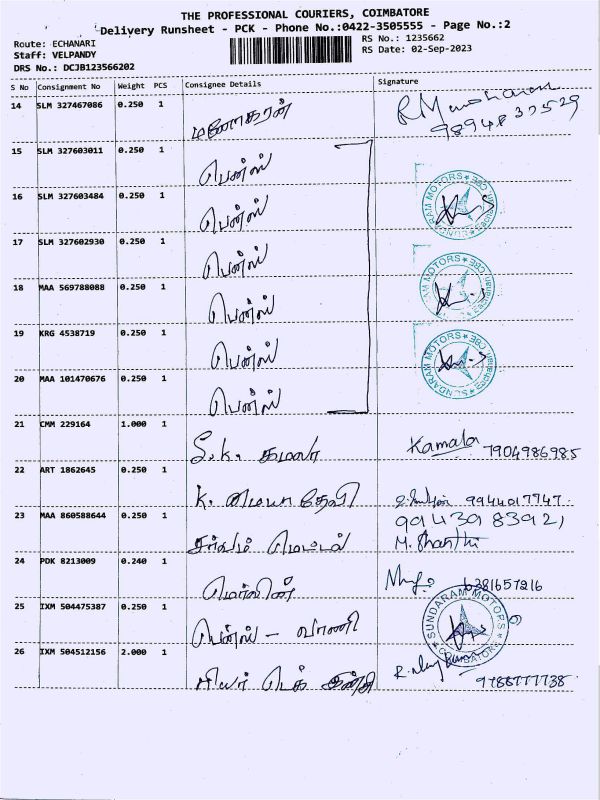 THE PROFESSIONAL COURIERS, COIMBATORE
Delivery Runsheet - PCK - Phone No.:0422-3505555 - Page No.:2
Route: ECHANARI
RS No.: 1235662
Staff: VELPANDY
RS Date: 02-Sep-2023
DRS No.: DCJB123566202
S No Consignment No Weight PCS Consignee Details Signature
14 SLM 327467086 0.250 1 மனோகரன் R Manoharan
9894837529
15 SLM 327603011 0.250 1 பென்ஸ்
16 SLM 327603484 0.250 1 பென்ஸ் SUNDARAM MOTORS
17 SLM 327602930 0.250 1 பென்ஸ்
18 MAA 569788088 0.250 1 பென்ஸ் SUNDARAM MOTORS
19 KRG 4538719 0.250 1 பென்ஸ் SUNDARAM MOTORS * Eachanari CBE
20 MAA 101470676 0.250 1 பென்ஸ்
21 CMM 229164 1.000 1 S.K. கமலா Kamala 7904986985
22 ART 1862645 0.250 1 K. 9944017747
23 MAA 860588644 0.250 1 மெட்டல் 9943983921
M. Shanthi
24 PDK 8213009 0.240 1 6381657216
25 IXM 504475387 0.250 1 பென்ஸ் - வாணி SUNDARAM MOTORS * COIMBATORE
26 IXM 504512156 2.000 1 டெக் 9788777738